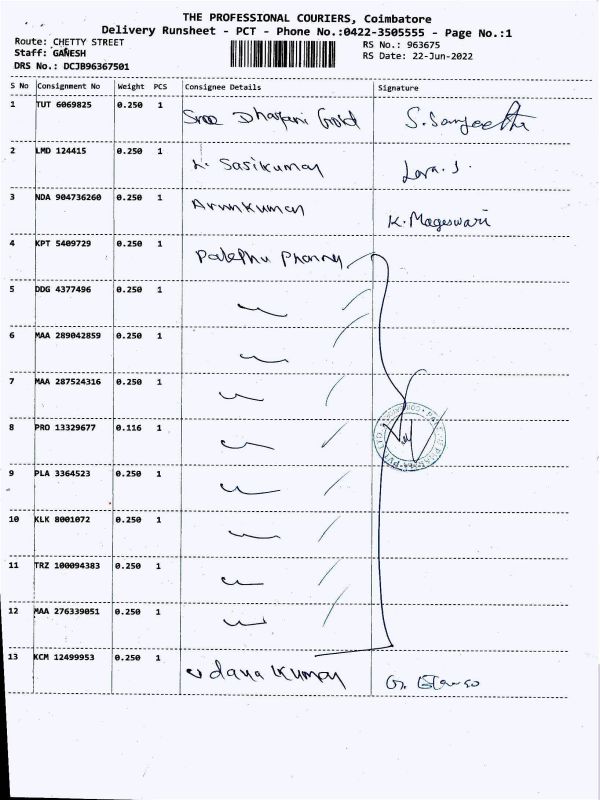 THE PROFESSIONAL COURIERS, Coimbatore
Delivery Runsheet - PCT - Phone No.:0422-3505555 - Page No.:1
Route: CHETTY STREET
Staff: GANESH
DRS No.: DCJB96367501
RS No.: 963675
RS Date: 22-Jun-2022
S No Consignment No Weight PCS Consignee Details Signature
1 TUT 6069825 0.250 1 Sree Dharani Gold S. Sangeetha
2 LMD 124415 0.250 1 K. Sasikumar
3 NDA 904736260 0.250 1 Arunkumar K. Mageswari
4 KPT 5409729 0.250 1
5 DDG 4377496 0.250 1
6 MAA 289042859 0.250 1
7 MAA 287524316 0.250 1
8 PRO 13329677 0.116 1
9 PLA 3364523 0.250 1
10 KLK 8001072 0.250 1
11 TRZ 100094383 0.250 1
12 MAA 276339051 0.250 1
13 KCM 12499953 0.250 1 udaya Kumar